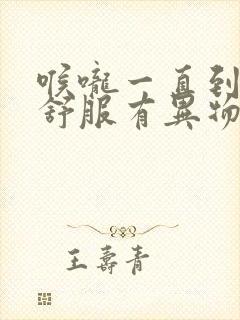 喉嚨一直到
舒服有異物
王壽青